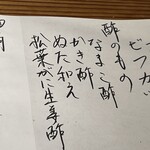 酢のもの
なまこ酢
かき酢
ぬた和え
松葉がに生姜酢